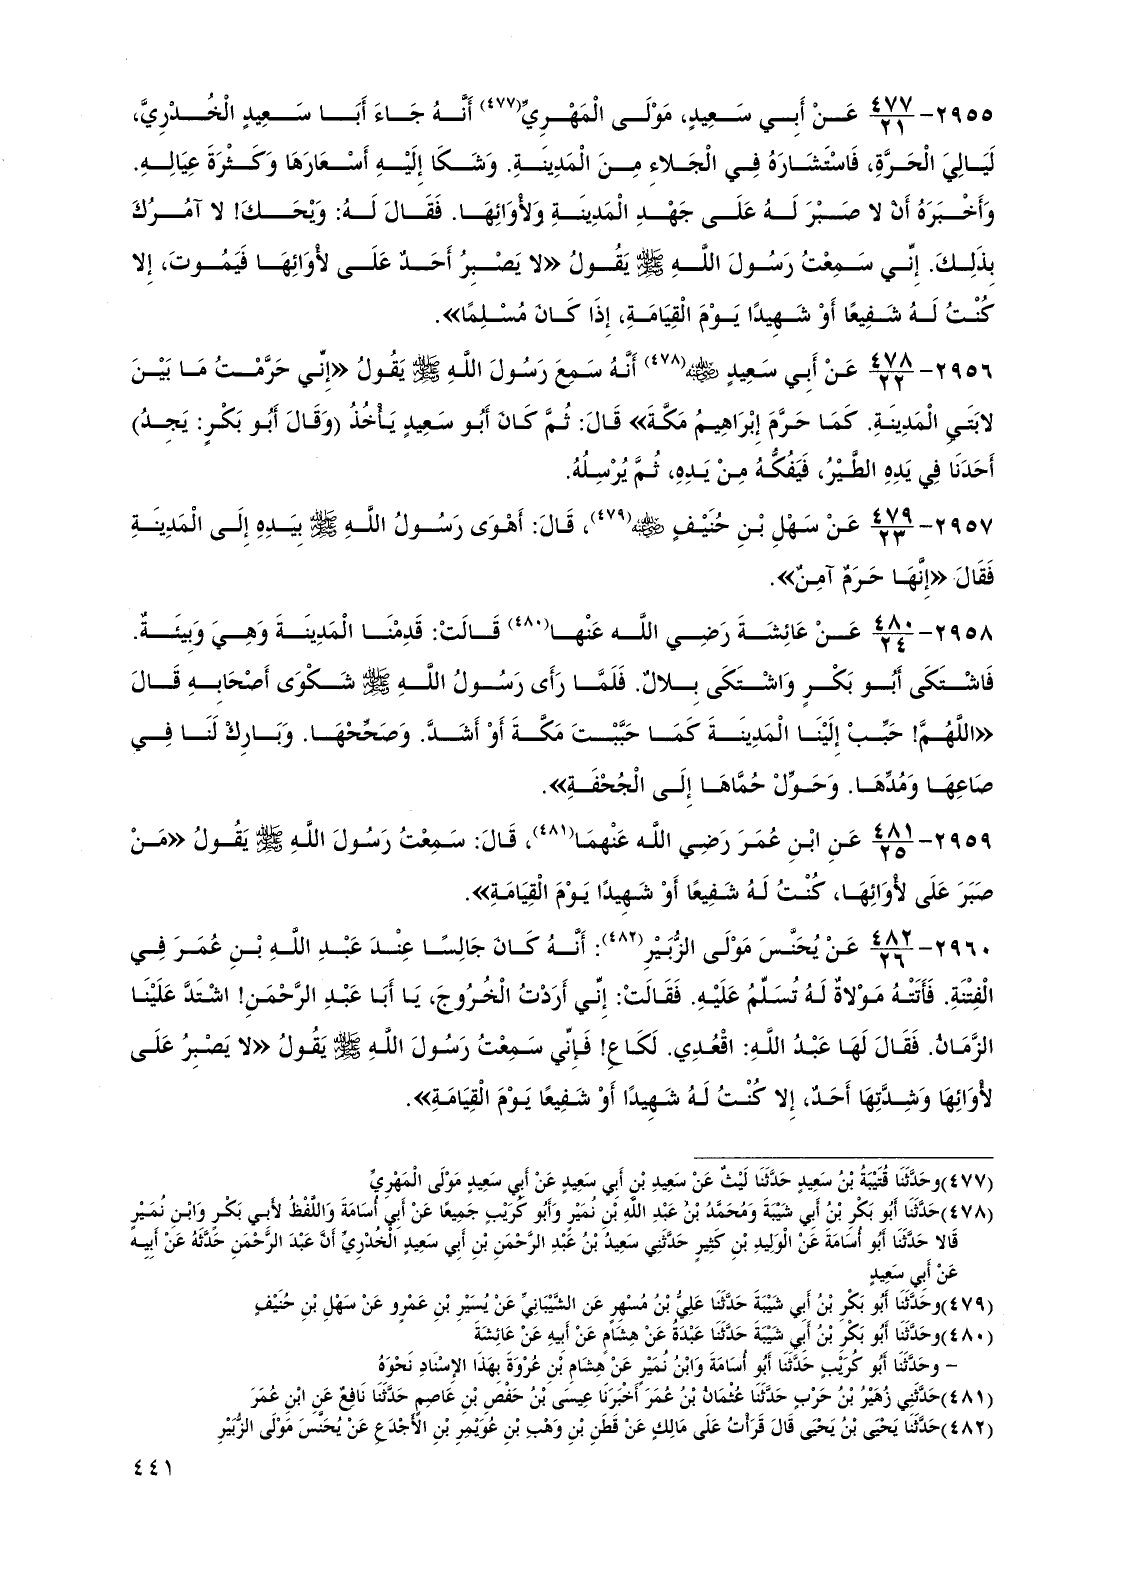 ٢٩٥٥- ٤٧٧/٢١ عَنْ أَبِي سَعِيدٍ، مَوْلَى الْمَهْرِيِّ(٤٧٧) أَنَّهُ جَاءَ أَبَا سَعِيدٍ الْخُدْرِيَّ،
لَيَالِيَ الْحَرَّةِ، فَاسْتَشَارَهُ فِي الْجَلَاءِ مِنَ الْمَدِينَةِ. وَشَكَا إِلَيْهِ أَسْعَارَهَا وَكَثْرَةَ عِيَالِهِ.
وَأَخْبَرَهُ أَنْ لا صَبْرَ لَهُ عَلَى جَهْدِ الْمَدِينَةِ وَلأْوَائِهَا. فَقَالَ لَهُ: وَيْحَكَ! لا آمُرُكَ
بِذَلِكَ. إِنِّي سَمِعْتُ رَسُولَ اللَّهِ ﷺ يَقُولُ «لا يَصْبِرُ أَحَدٌ عَلَى لأْوَائِهَا فَيَمُوتَ، إِلا
كُنْتُ لَهُ شَفِيعًا أَوْ شَهِيدًا يَوْمَ الْقِيَامَةِ، إِذَا كَانَ مُسْلِمًا».
٢٩٥٦- ٤٧٨/٢٢ عَنْ أَبِي سَعِيدٍ رضي الله عنه(٤٧٨) أَنَّهُ سَمِعَ رَسُولَ اللَّهِ ﷺ يَقُولُ «إِنِّي حَرَّمْتُ مَا بَيْنَ
لابَتَيِ الْمَدِينَةِ. كَمَا حَرَّمَ إِبْرَاهِيمُ مَكَّةَ» قَالَ: ثُمَّ كَانَ أَبُو سَعِيدٍ يَأْخُذُ (وَقَالَ أَبُو بَكْرٍ: يَجِدُ)
أَحَدَنَا فِي يَدِهِ الطَّيْرُ، فَيَفُكُّهُ مِنْ يَدِهِ، ثُمَّ يُرْسِلُهُ.
٢٩٥٧- ٤٧٩/٢٣ عَنْ سَهْلِ بْنِ حُنَيْفٍ رضي الله عنه(٤٧٩)، قَالَ: أَهْوَى رَسُولُ اللَّهِ ﷺ بِيَدِهِ إِلَى الْمَدِينَةِ
فَقَالَ «إِنَّهَا حَرَمٌ آمِنٌ».
٢٩٥٨- ٤٨٠/٢٤ عَنْ عَائِشَةَ رَضِي اللَّه عَنْهَا(٤٨٠) قَالَتْ: قَدِمْنَا الْمَدِينَةَ وَهِيَ وَبِيئَةٌ.
فَاشْتَكَى أَبُو بَكْرٍ وَاشْتَكَى بِلالٌ. فَلَمَّا رَأَى رَسُولُ اللَّهِ ﷺ شَكْوَى أَصْحَابِهِ قَالَ
«اللَّهُمَّ! حَبِّبْ إِلَيْنَا الْمَدِينَةَ كَمَا حَبَّبْتَ مَكَّةَ أَوْ أَشَدَّ. وَصَحِّحْهَا. وَبَارِكْ لَنَا فِي
صَاعِهَا وَمُدِّهَا. وَحَوِّلْ حُمَّاهَا إِلَى الْجُحْفَةِ».
٢٩٥٩- ٤٨١/٢٥ عَنِ ابْنِ عُمَرَ رَضِي اللَّه عَنْهمَا(٤٨١)، قَالَ: سَمِعْتُ رَسُولَ اللَّهِ ﷺ يَقُولُ «مَنْ
صَبَرَ عَلَى لأْوَائِهَا، كُنْتُ لَهُ شَفِيعًا أَوْ شَهِيدًا يَوْمَ الْقِيَامَةِ».
٢٩٦٠- ٤٨٢/٢٦ عَنْ يُحَنَّسَ مَوْلَى الزُّبَيْرِ(٤٨٢): أَنَّهُ كَانَ جَالِسًا عِنْدَ عَبْدِ اللَّهِ بْنِ عُمَرَ فِي
الْفِتْنَةِ. فَأَتَتْهُ مَوْلاةٌ لَهُ تُسَلِّمُ عَلَيْهِ. فَقَالَتْ: إِنِّي أَرَدْتُ الْخُرُوجَ، يَا أَبَا عَبْدِ الرَّحْمَنِ! اشْتَدَّ عَلَيْنَا
الزَّمَانُ. فَقَالَ لَهَا عَبْدُ اللَّهِ: اقْعُدِي. لَكَاعِ! فَإِنِّي سَمِعْتُ رَسُولَ اللَّهِ ﷺ يَقُولُ «لا يَصْبِرُ عَلَى
لأْوَائِهَا وَشِدَّتِهَا أَحَدٌ، إِلا كُنْتُ لَهُ شَهِيدًا أَوْ شَفِيعًا يَوْمَ الْقِيَامَةِ».
(٤٧٧)وحَدَّثَنَا قُتَيْبَةُ بْنُ سَعِيدٍ حَدَّثَنَا لَيْثٌ عَنْ سَعِيدِ بْنِ أَبِي سَعِيدٍ عَنْ أَبِي سَعِيدٍ مَوْلَى الْمَهْرِيِّ
(٤٧٨)حَدَّثَنَا أَبُو بَكْرِ بْنُ أَبِي شَيْبَةَ وَمُحَمَّدُ بْنُ عَبْدِ اللَّهِ بْنِ نُمَيْرٍ وَأَبُو كُرَيْبٍ جَمِيعًا عَنْ أَبِي أُسَامَةَ وَاللَّفْظُ لأَبِي بَكْرٍ وَابْنِ نُمَيْرٍ
قَالا حَدَّثَنَا أَبُو أُسَامَةَ عَنْ الْوَلِيدِ بْنِ كَثِيرٍ حَدَّثَنِي سَعِيدُ بْنُ عَبْدِ الرَّحْمَنِ بْنِ أَبِي سَعِيدٍ الْخُدْرِيِّ أَنَّ عَبْدَ الرَّحْمَنِ حَدَّثَهُ عَنْ أَبِيهِ
عَنْ أَبِي سَعِيدٍ
(٤٧٩)وحَدَّثَنَا أَبُو بَكْرِ بْنُ أَبِي شَيْبَةَ حَدَّثَنَا عَلِيُّ بْنُ مُسْهِرٍ عَنِ الشَّيْبَانِيِّ عَنْ يُسَيْرِ بْنِ عَمْرٍو عَنْ سَهْلِ بْنِ حُنَيْفٍ
(٤٨٠)وحَدَّثَنَا أَبُو بَكْرِ بْنُ أَبِي شَيْبَةَ حَدَّثَنَا عَبْدَةُ عَنْ هِشَامٍ عَنْ أَبِيهِ عَنْ عَائِشَةَ
– وحَدَّثَنَا أَبُو كُرَيْبٍ حَدَّثَنَا أَبُو أُسَامَةَ وَابْنُ نُمَيْرٍ عَنْ هِشَامِ بْنِ عُرْوَةَ بِهَذَا الإِسْنَادِ نَحْوَهُ
(٤٨١)حَدَّثَنِي زُهَيْرُ بْنُ حَرْبٍ حَدَّثَنَا عُثْمَانُ بْنُ عُمَرَ أَخْبَرَنَا عِيسَى بْنُ حَفْصِ بْنِ عَاصِمٍ حَدَّثَنَا نَافِعٌ عَنِ ابْنِ عُمَرَ
(٤٨٢)حَدَّثَنَا يَحْيَى بْنُ يَحْيَى قَالَ قَرَأْتُ عَلَى مَالِكٍ عَنْ قَطَنِ بْنِ وَهْبِ بْنِ عُوَيْمِرِ بْنِ الأَجْدَعِ عَنْ يُحَنَّسَ مَوْلَى الزُّبَيْرِ
٤٤١